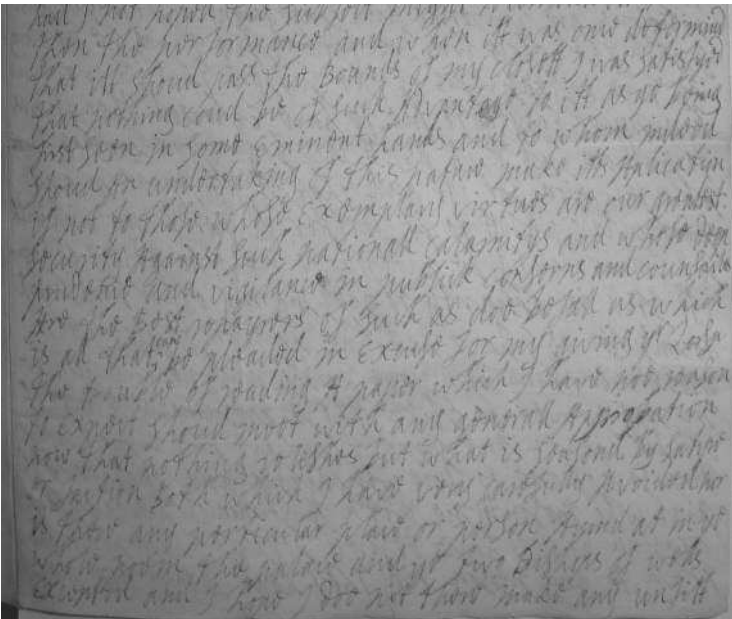 had I not hoped the subject might
then the performance and when itt was once determind
that itt shoud pass the Bounds of my closett I was satisfyd
that nothing coud be of such Advantage to itt as ye being
first seen in some Eminent hands and to whom indeed
shoud an undertaking of this nature make itts Aplication
if not to those whose Exemplary virtues are our greatest
security Against such nationall calamitys and whose deep
prudence and vigilance in publick conserns and counsills
Are the best repayrers of such as doe befall us which
is all that can be pleaded in Excuse for my giving yr Lordsp
the trouble of reading A paper which I have noe reason
to expect shoud meet with any generall Approbation
now that nothing relishes but what is seasond by satyre
or faction both which I have very carefully Avoided nor
is there any perticular place or person Aymd at in ye
whole poem the palace and ye two Bishops of wells
Excepted and I hope I doe not there make any unfitt